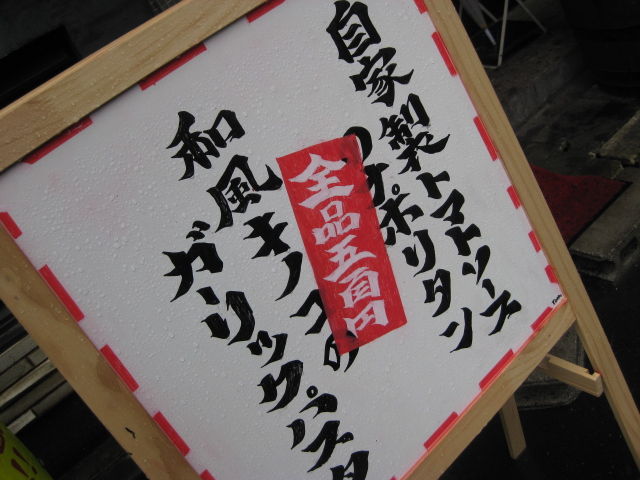 自家製トマトソース
のナポリタン
全品五百円
和風キノコの
ガーリックパスタ